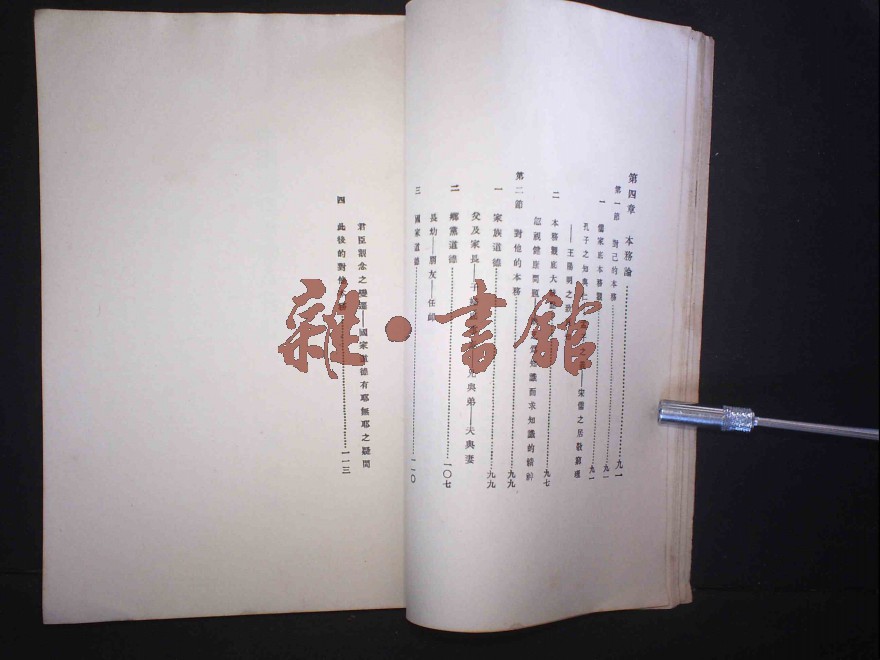 第四章 本務論……九一
第一節 對己的本務……九一
一 儒家底本務觀……九一
孔子之知與仁 之 ——宋儒之居敬窮理
——王陽明之致
二 本務觀底大 ……九七
忽視健康問題 知識而求知識的精神
第二節 對他的本務……九九
一 家族道德……九九
父及家長——子 兄與弟——夫與妻
二 鄉黨道德……一〇七
長幼——朋友——任卹
三 國家道德……一一〇
君臣觀念之變遷——國家道德有耶無耶之疑問
四 此後的對他 ……一一三
雜·書館